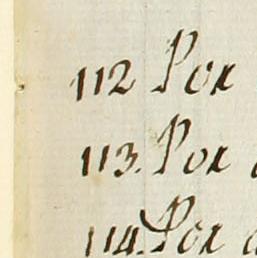 112 Por
113. Por
114. Por